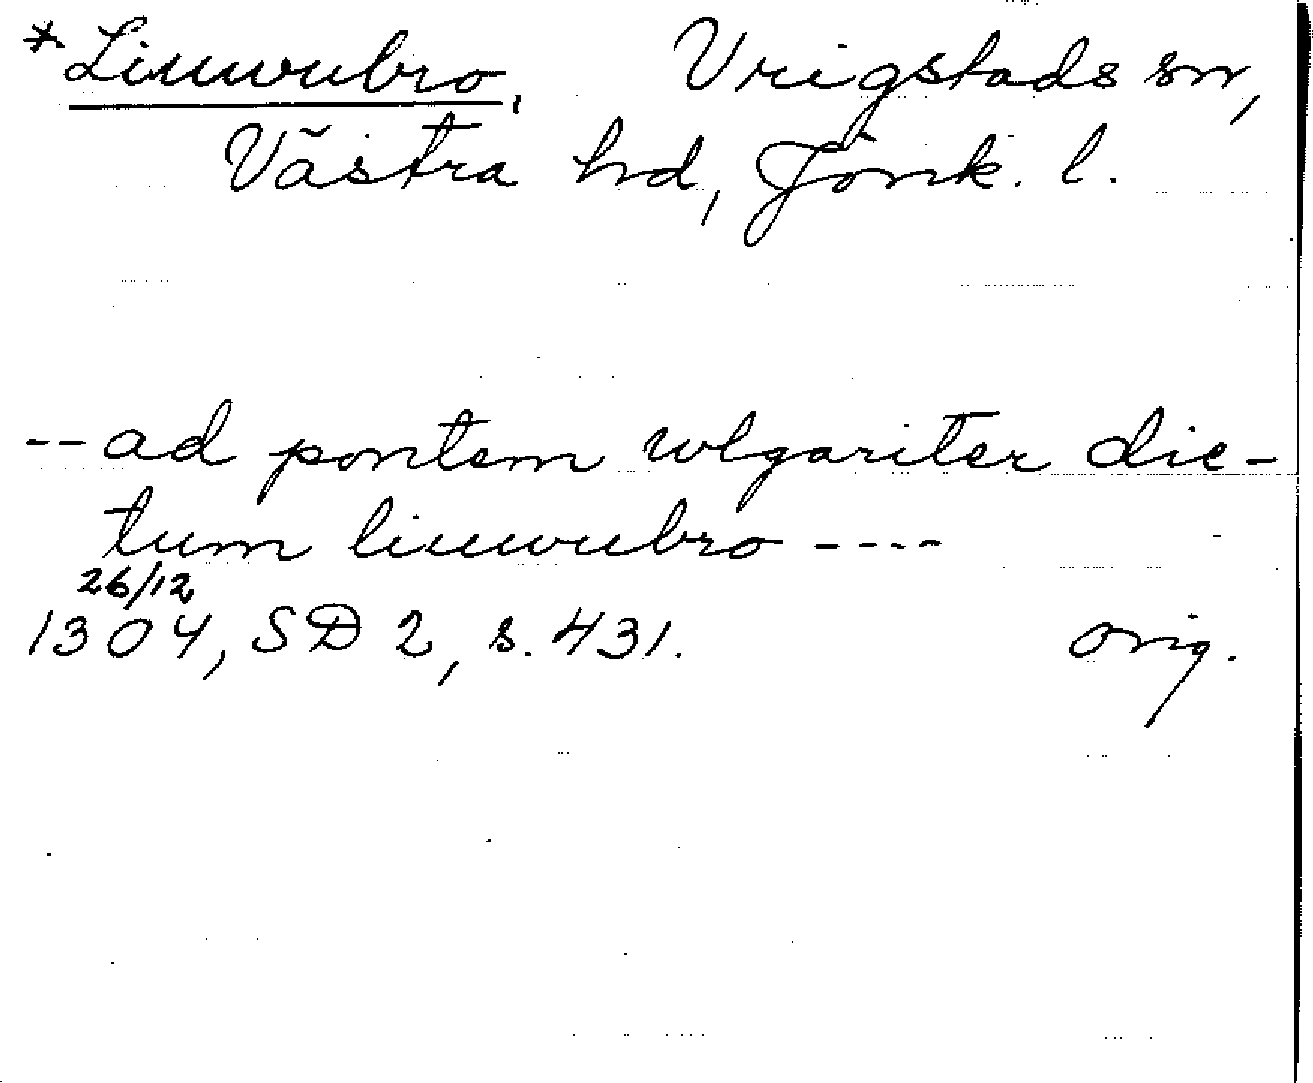 *Liuwubro. Vrigstads sn,
Västra hd, Jönk. l.
-- ad pontem wlgariter dic-
tum liuwubro ----
26/12
1304, SD 2, s. 431. orig.